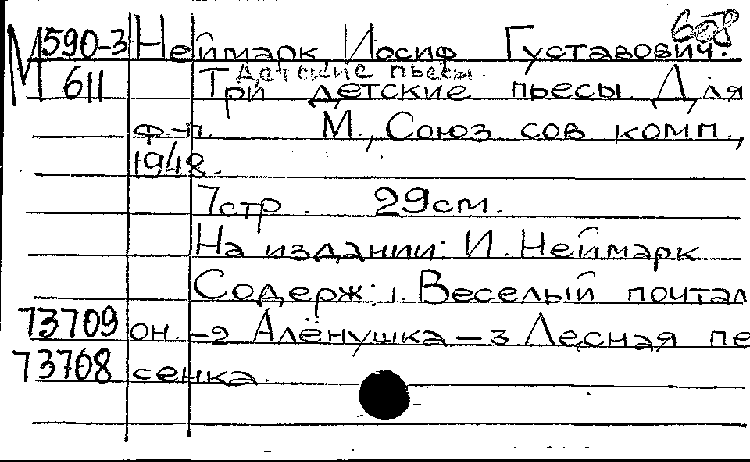 608
М 590-3 Неймарк Иосиф Густавович.
Детские пьесы.
611 Три детские пьесы Для
ф-п. М., Союз сов комп.,
1948.
7стр. 29см.
На издании: И. Неймарк
Содерж: 1. Веселый почтал
73709 он -2 Алёнушка-3 Лесная пе
73708 сенка